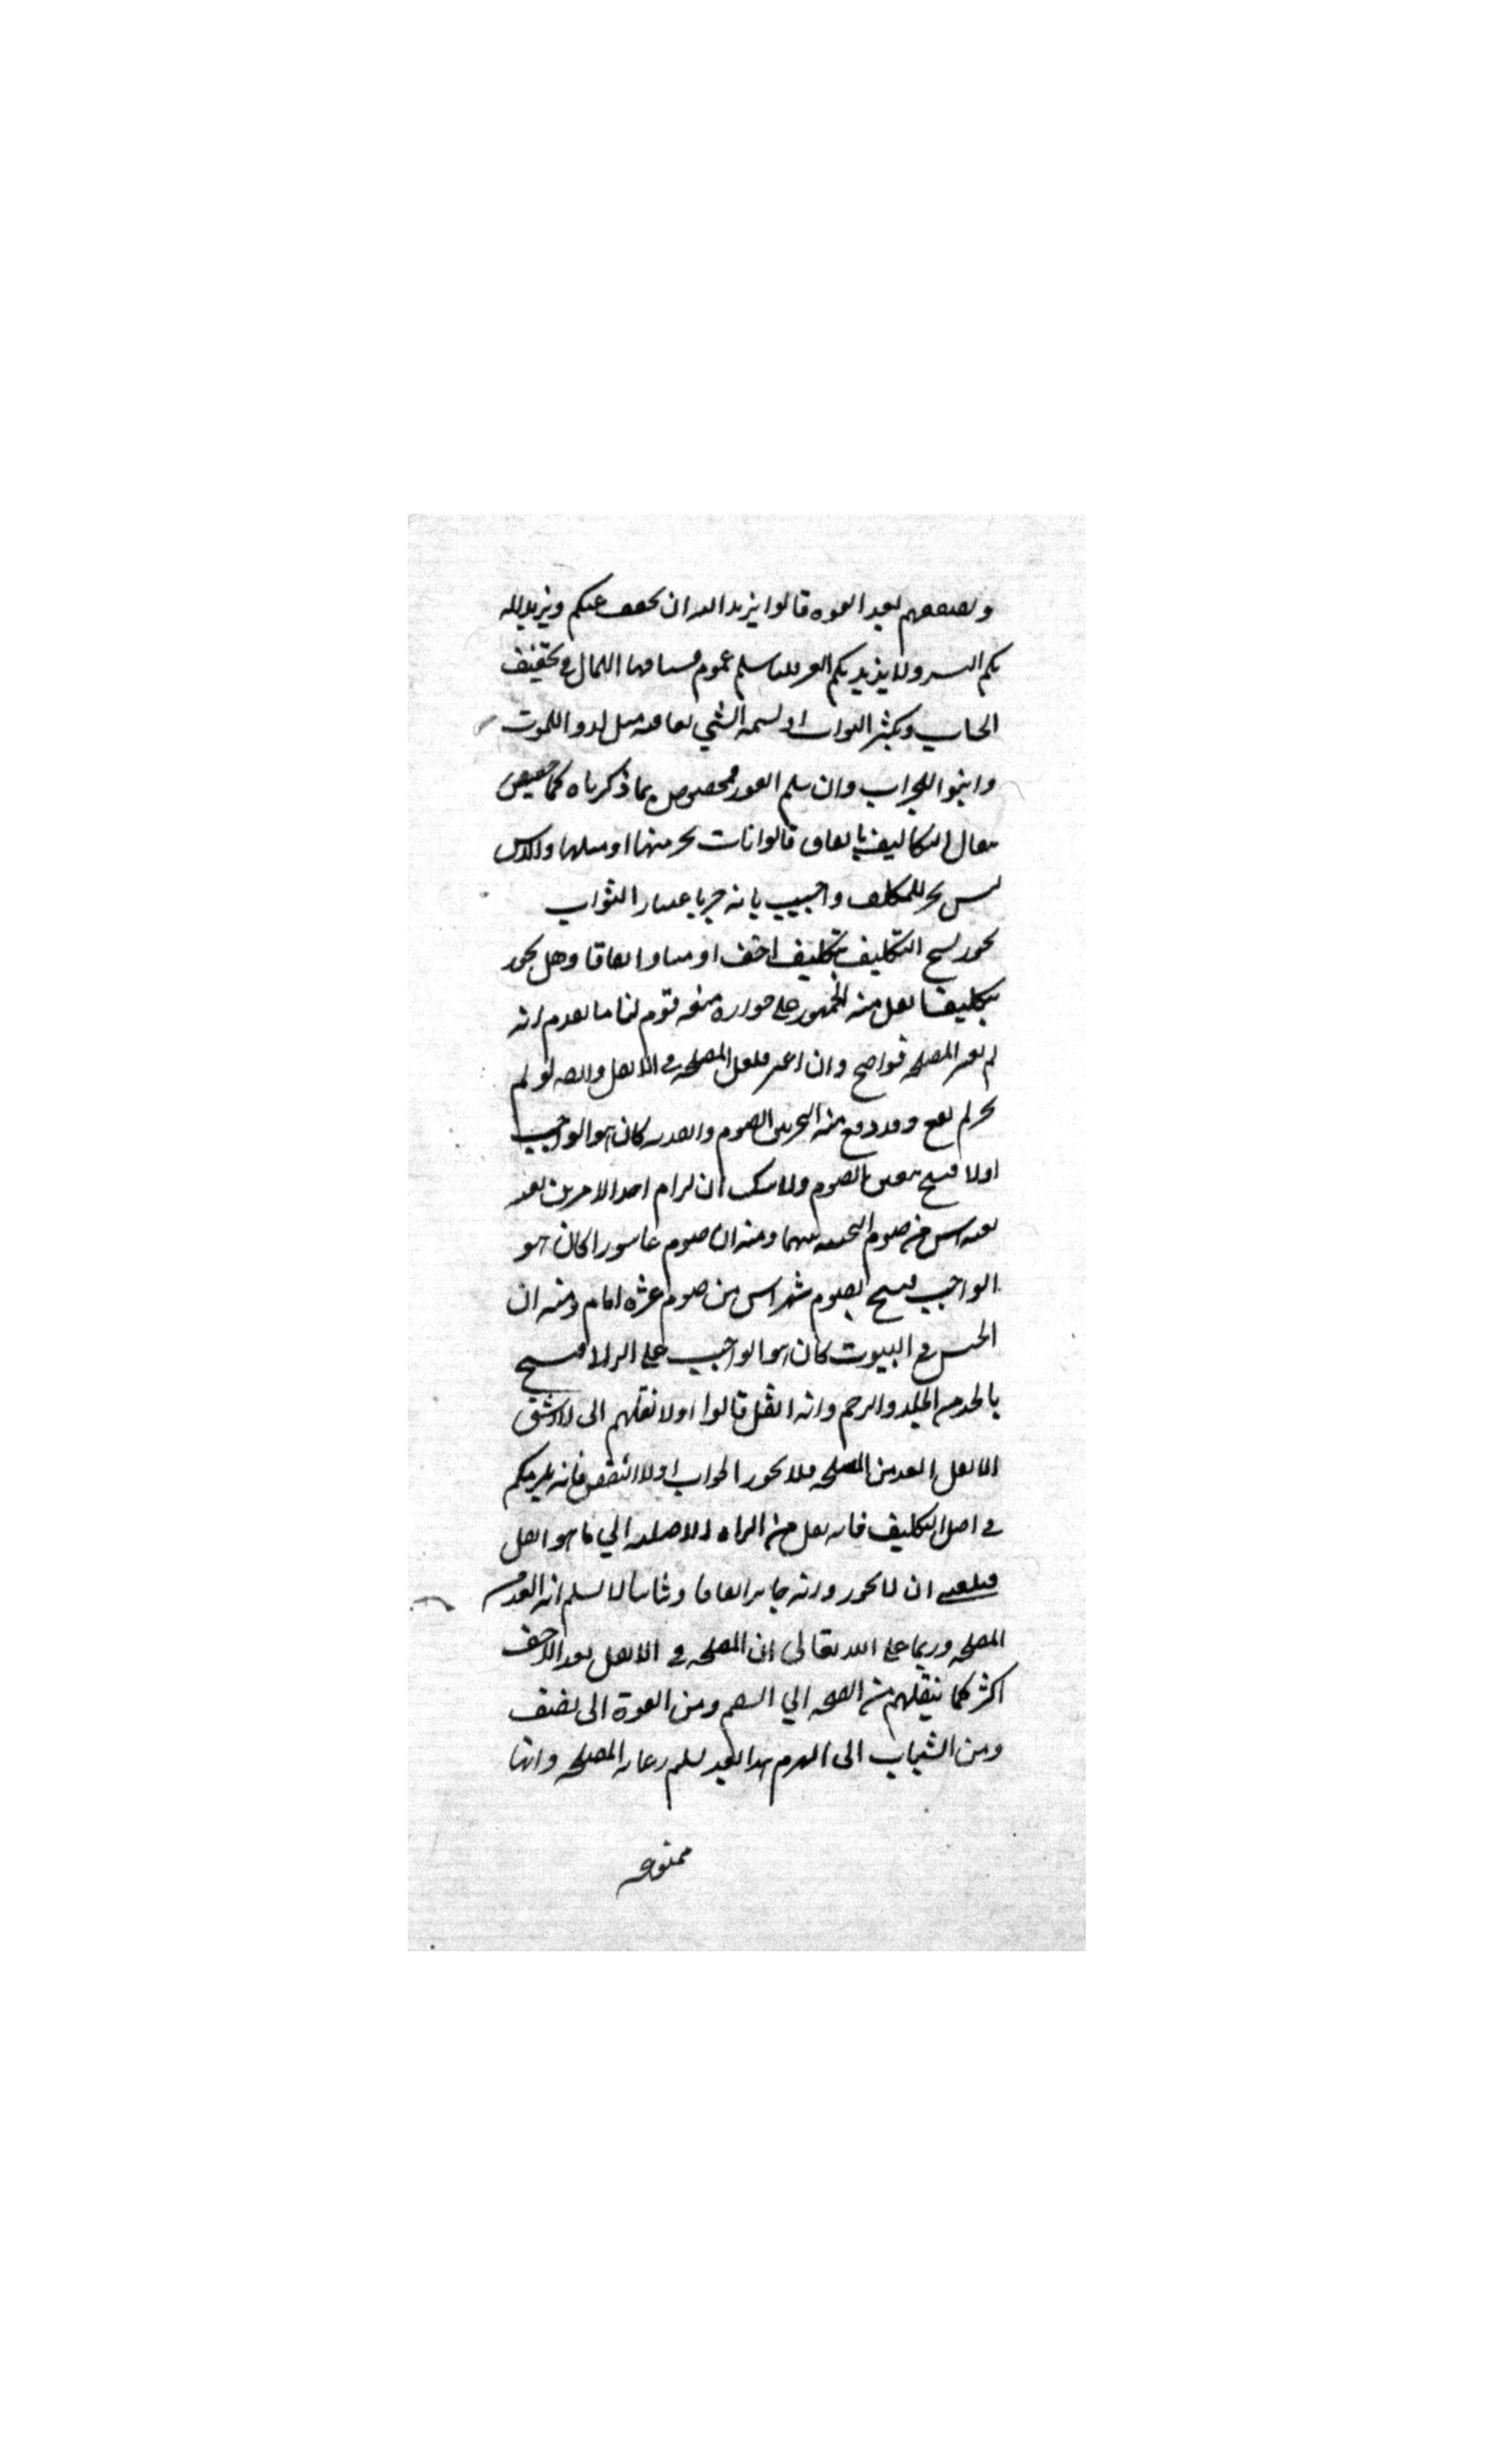 وبضعفهم بعد القوه قالوا يريد الله ان يخفف عنكم ويريد الله
بكم اليسر ولا يريد بكم العسر قلنا سلم عموم فسياقها المال في تخفيف
الحساب وتكثير الثواب او لسميه الشي بعاقبته مثل لدوا للموت
وابنوا للخراب وان سلم الفور فمخصوص بما ذكرناه كما خصص
بقال التكاليف باتفاق قالوا نات بخير منها او مثلها والاشق
ليس بخير للمكلف واجيب بانه خير باعتبار الثواب
يجوز نسخ التكليف بتكليف اخف او مساو اتفاقا وهل يجوز
بتكليف اثقل منه الجمهور على جوازه ومنعه قوم لنا ما تقدم انه
لم يعتبر المصلحه فواضح وان اعتبر فلعل المصلحه في الاثقل وايضه لو لم
يجز لم يقع وقد وقع منه التخيير بين الصوم والفديه كان هو الواجب
اولا فنسخ بتعيين الصوم ولا شك ان الزام احد الامرين بعد
بعينه اشق من صوم التخيير بينهما ومنه ان صوم عاشورا كان هو
الواجب فنسخ بصوم شهر اشق من صوم عشره ايام ومنه ان
الحبس في البيوت كان هو الواجب على الزنا فنسخ
بالحد من الجلد والرجم وانه اثقل قالوا اولا نقلهم الى الاشق
الاثقل ابعد من المصلحه فلا يجوز الجواب اولا النقض فانه يلزمكم
في اصل التكليف فانه نقل من البراه الاصليه الي ما هو اثقل
فينبغي ان لا يجوز وانه جايز اتفاقا وثانيا لا نسلم انه ابعد من
المصلحه وربما علم الله تعالى ان المصلحه في الاثقل بعد الاخف
اكثر كما ينقلهم من الصحه الي السقم ومن القوة الى لضعف
ومن الشباب الى الهرم هذا بعد تسليم رعايه المصلحه وانها
ممنوعه